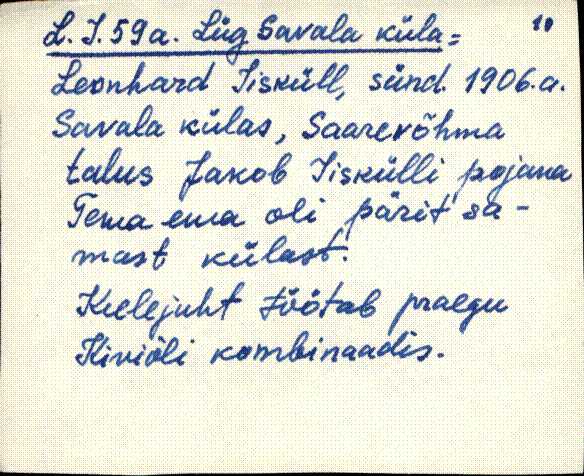 L. I. 59a. Lüg Savala küla= 10
Leonhard Iisküll, sünd. 1906.a.
Savala külas, Saarevõhma
talus Jakob Iiskülli pojana
Tema ema oli pärit sa-
mast külast.
Keelejuht töötab praegu
Kiviõli kombinaadis.